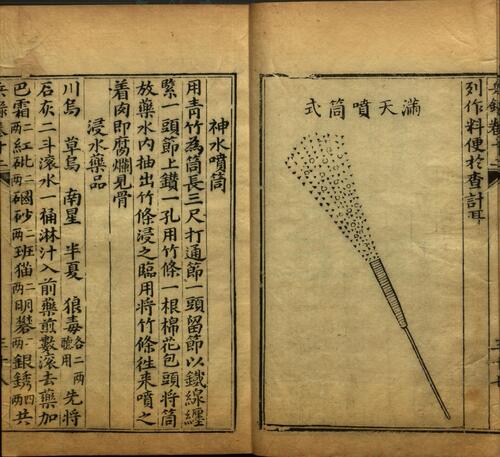 列作料便於查計耳
滿天噴筒式
神水噴筒
用青竹為筒長三尺打通節一頭留節以鐵線纏
緊一頭節上鑽一孔用竹條一根棉花包頭將筒
放藥水內抽出竹條浸之臨用將竹條徃来噴之
着肉即腐爛見骨
浸水藥品
川烏 草烏 南星 半夏 狼毒各二兩聽用先將
石灰二斗滾水一桶淋汁入前藥煎數滾去藥加
巴霜二兩紅砒二兩硇砂二兩班猫二兩明礬二兩銀銹四兩共